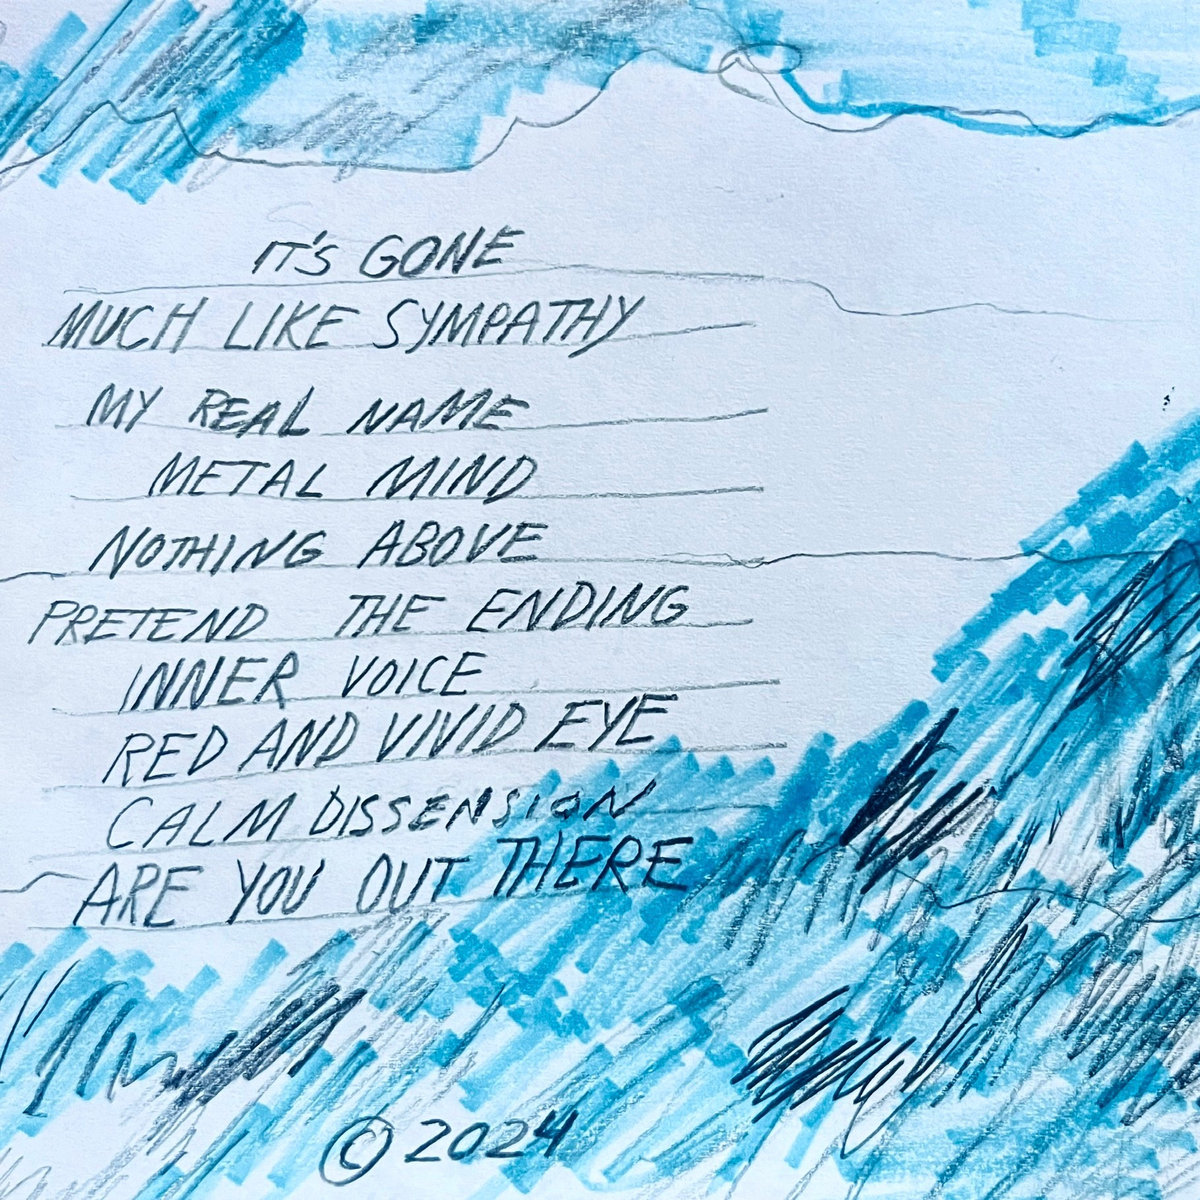 IT'S GONE
MUCH LIKE SYMPATHY
MY REAL NAME
METAL MIND
NOTHING ABOVE
PRETEND THE ENDING
INNER VOICE
RED AND VIVID EYE
CALM DISSENSION
ARE YOU OUT THERE
© 2024